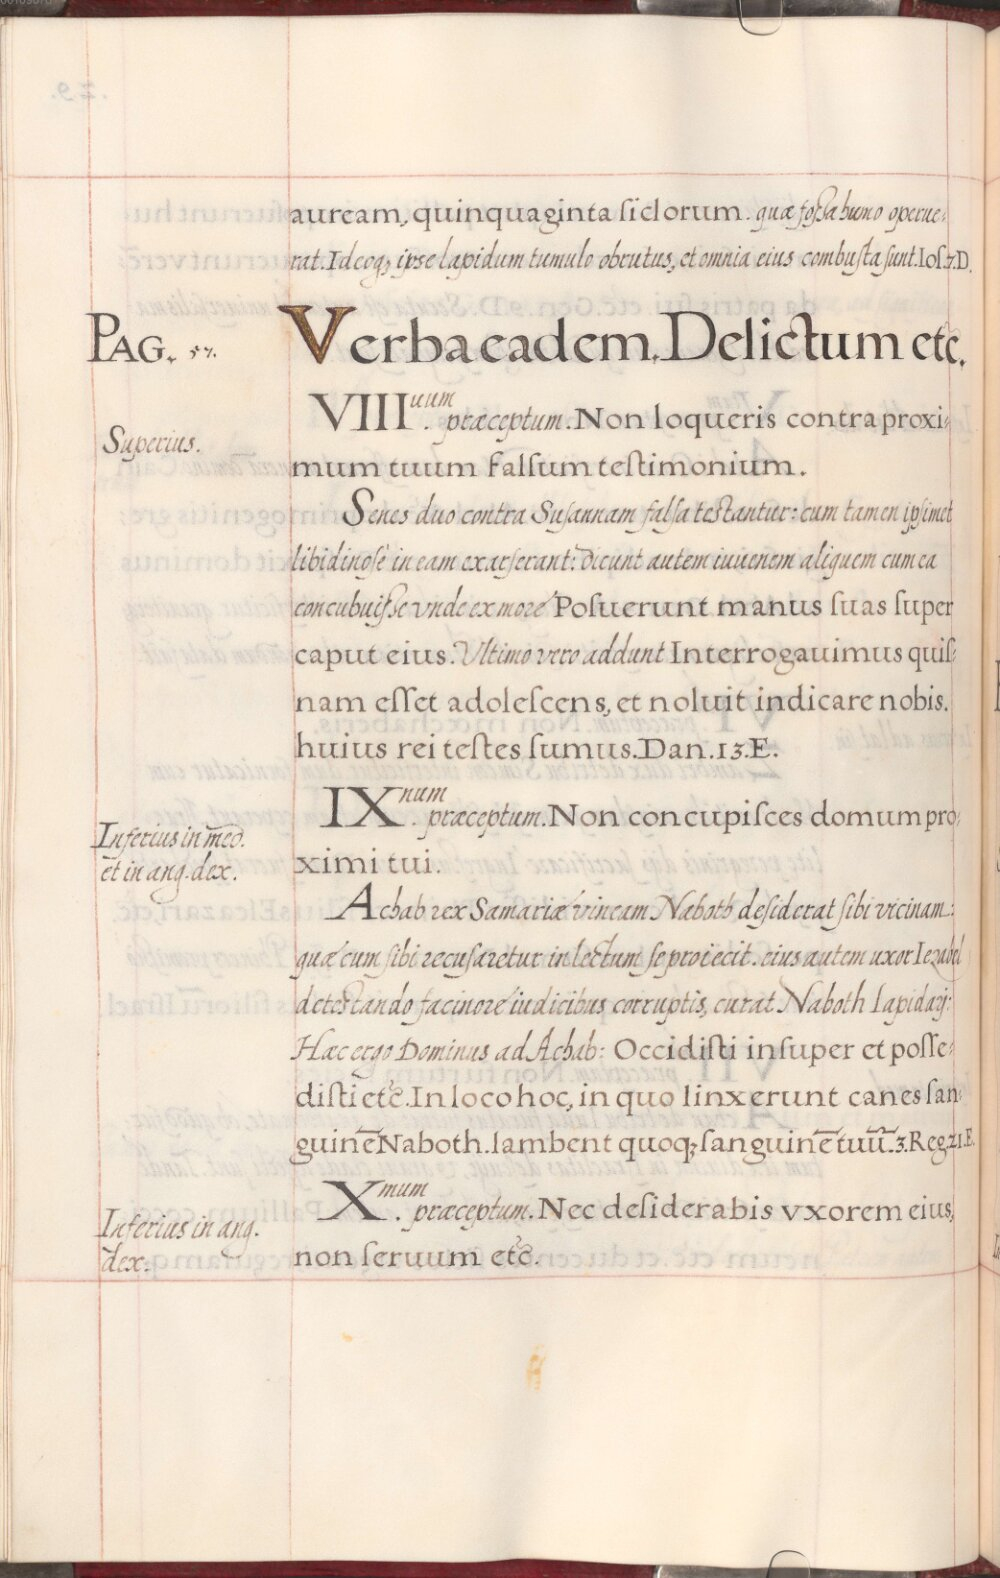 auream, quinquaginta siclorum. quæ fossa humo operue-
rat. Ideoq; ipse lapidum tumulo obrutus, et omnia eius combusta sunt. Ios. 7. D.
PAG. 57.
Verba eadem. Delictum etc.
VIII.uum præceptum. Non loqueris contra proxi-
Superius.
mum tuum falsum testimonium.
Senes duo contra Susannam falsa testantur: cum tamen ipsimet
libidinosè in eam exarserant: Dicunt autem iuuenem aliquem cum ea
concubuisse vnde ex more Posuerunt manus suas super
caput eius. Ultimo vero addunt Interrogauimus quis-
nam esset adolescens, et noluit indicare nobis.
huius rei testes sumus. Dan. 13. E.
IX.num præceptum. Non concupisces domum pro-
Inferius in med.
et in ang. dex.
ximi tui.
Achab rex Samariæ vineam Naboth desiderat sibi vicinam:
quæ cum sibi recusaretur in lectum se proiecit. eius autem uxor Iezabel
detestando facinore iudicibus corruptis, curat Naboth lapidarj:
Hæc ergo Dominus ad Achab: Occidisti insuper et posse-
disti etc. In loco hoc, in quo linxerunt canes san-
guinē Naboth. lambent quoq; sanguinē tuū. 3. Reg. 21. E.
X.mum præceptum. Nec desiderabis vxorem eius,
Inferius in ang.
dex.
non seruum etc.